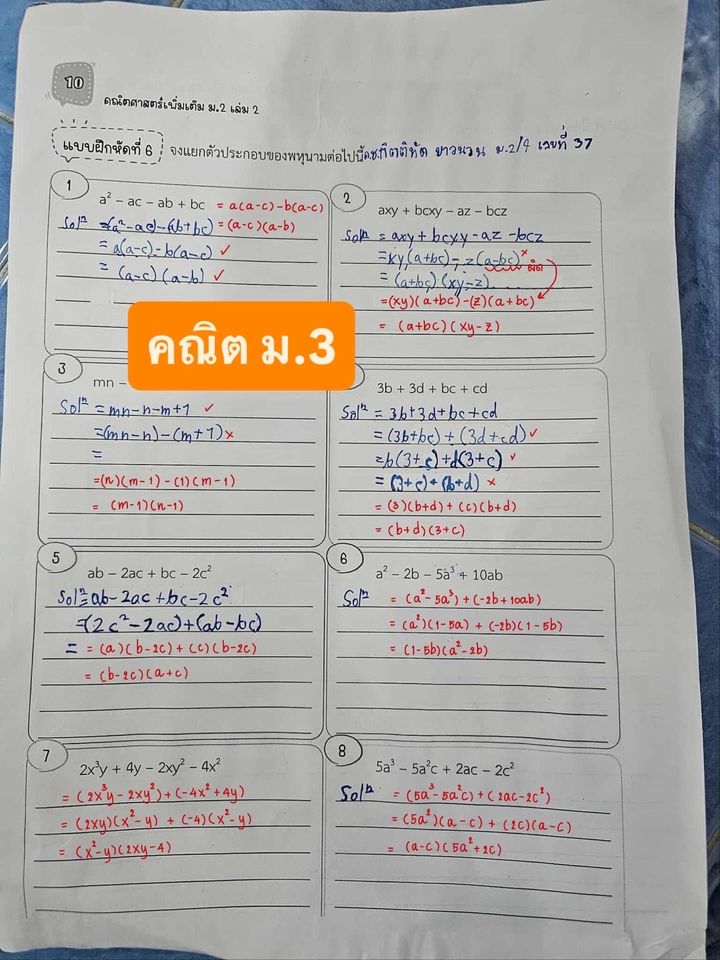 10
คณิตศาสตร์เพิ่มเติม ม.2 เล่ม 2
แบบฝึกหัดที่ 6 จงแยกตัวประกอบของพหุนามต่อไปนี้ ม.2/4 เลขที่ 37
1
a² − ac − ab + bc = a(a-c)-b(a-c)
Solⁿ =(a²-ac)-(ab+bc) = (a-c)(a-b)
= a(a-c)-b(a-c) ✓
= (a-c)(a-b) ✓
2
axy + bcxy − az − bcz
Solⁿ = axy + bcxy - az - bcz
= xy(a+bc) - z(a-bc) × ผิด
= (a+bc)(xy-z)
= (xy)(a+bc)-(z)(a+bc)
= (a+bc)(xy-z)
คณิต ม.3
3
mn −
Solⁿ = mn-n-m+1 ✓
=(mn-n)-(m+1) ×
=
=(n)(m-1)-(1)(m-1)
= (m-1)(n-1)
3b + 3d + bc + cd
Solⁿ = 3b+3d+bc+cd
= (3b+bc)+(3d+cd) ✓
= b(3+c)+d(3+c) ✓
= (3+c)+(b+d) ×
= (3)(b+d)+(c)(b+d)
= (b+d)(3+c)
5
ab − 2ac + bc − 2c²
Solⁿ = ab-2ac+bc-2c²
=(2c²-2ac)+(ab-bc)
= = (a)(b-2c)+(c)(b-2c)
= (b-2c)(a+c)
6
a² − 2b − 5a³ + 10ab
Solⁿ = (a²-5a³)+(-2b+10ab)
= (a²)(1-5a)+(-2b)(1-5b)
= (1-5b)(a²-2b)
7
2x³y + 4y − 2xy² − 4x²
= (2x³y-2xy²)+(-4x²+4y)
= (2xy)(x²-y)+(-4)(x²-y)
= (x²-y)(2xy-4)
8
5a³ − 5a²c + 2ac − 2c²
Solⁿ = (5a³-5a²c)+(2ac-2c²)
= (5a²)(a-c)+(2c)(a-c)
= (a-c)(5a²+2c)